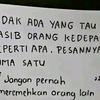 IDAK ADA YANG TAU
ASIB ORANG KEDEPAN
EPERTI APA, PESANNYA
UMA SATU
Jangan pernah
meremehkan orang lain